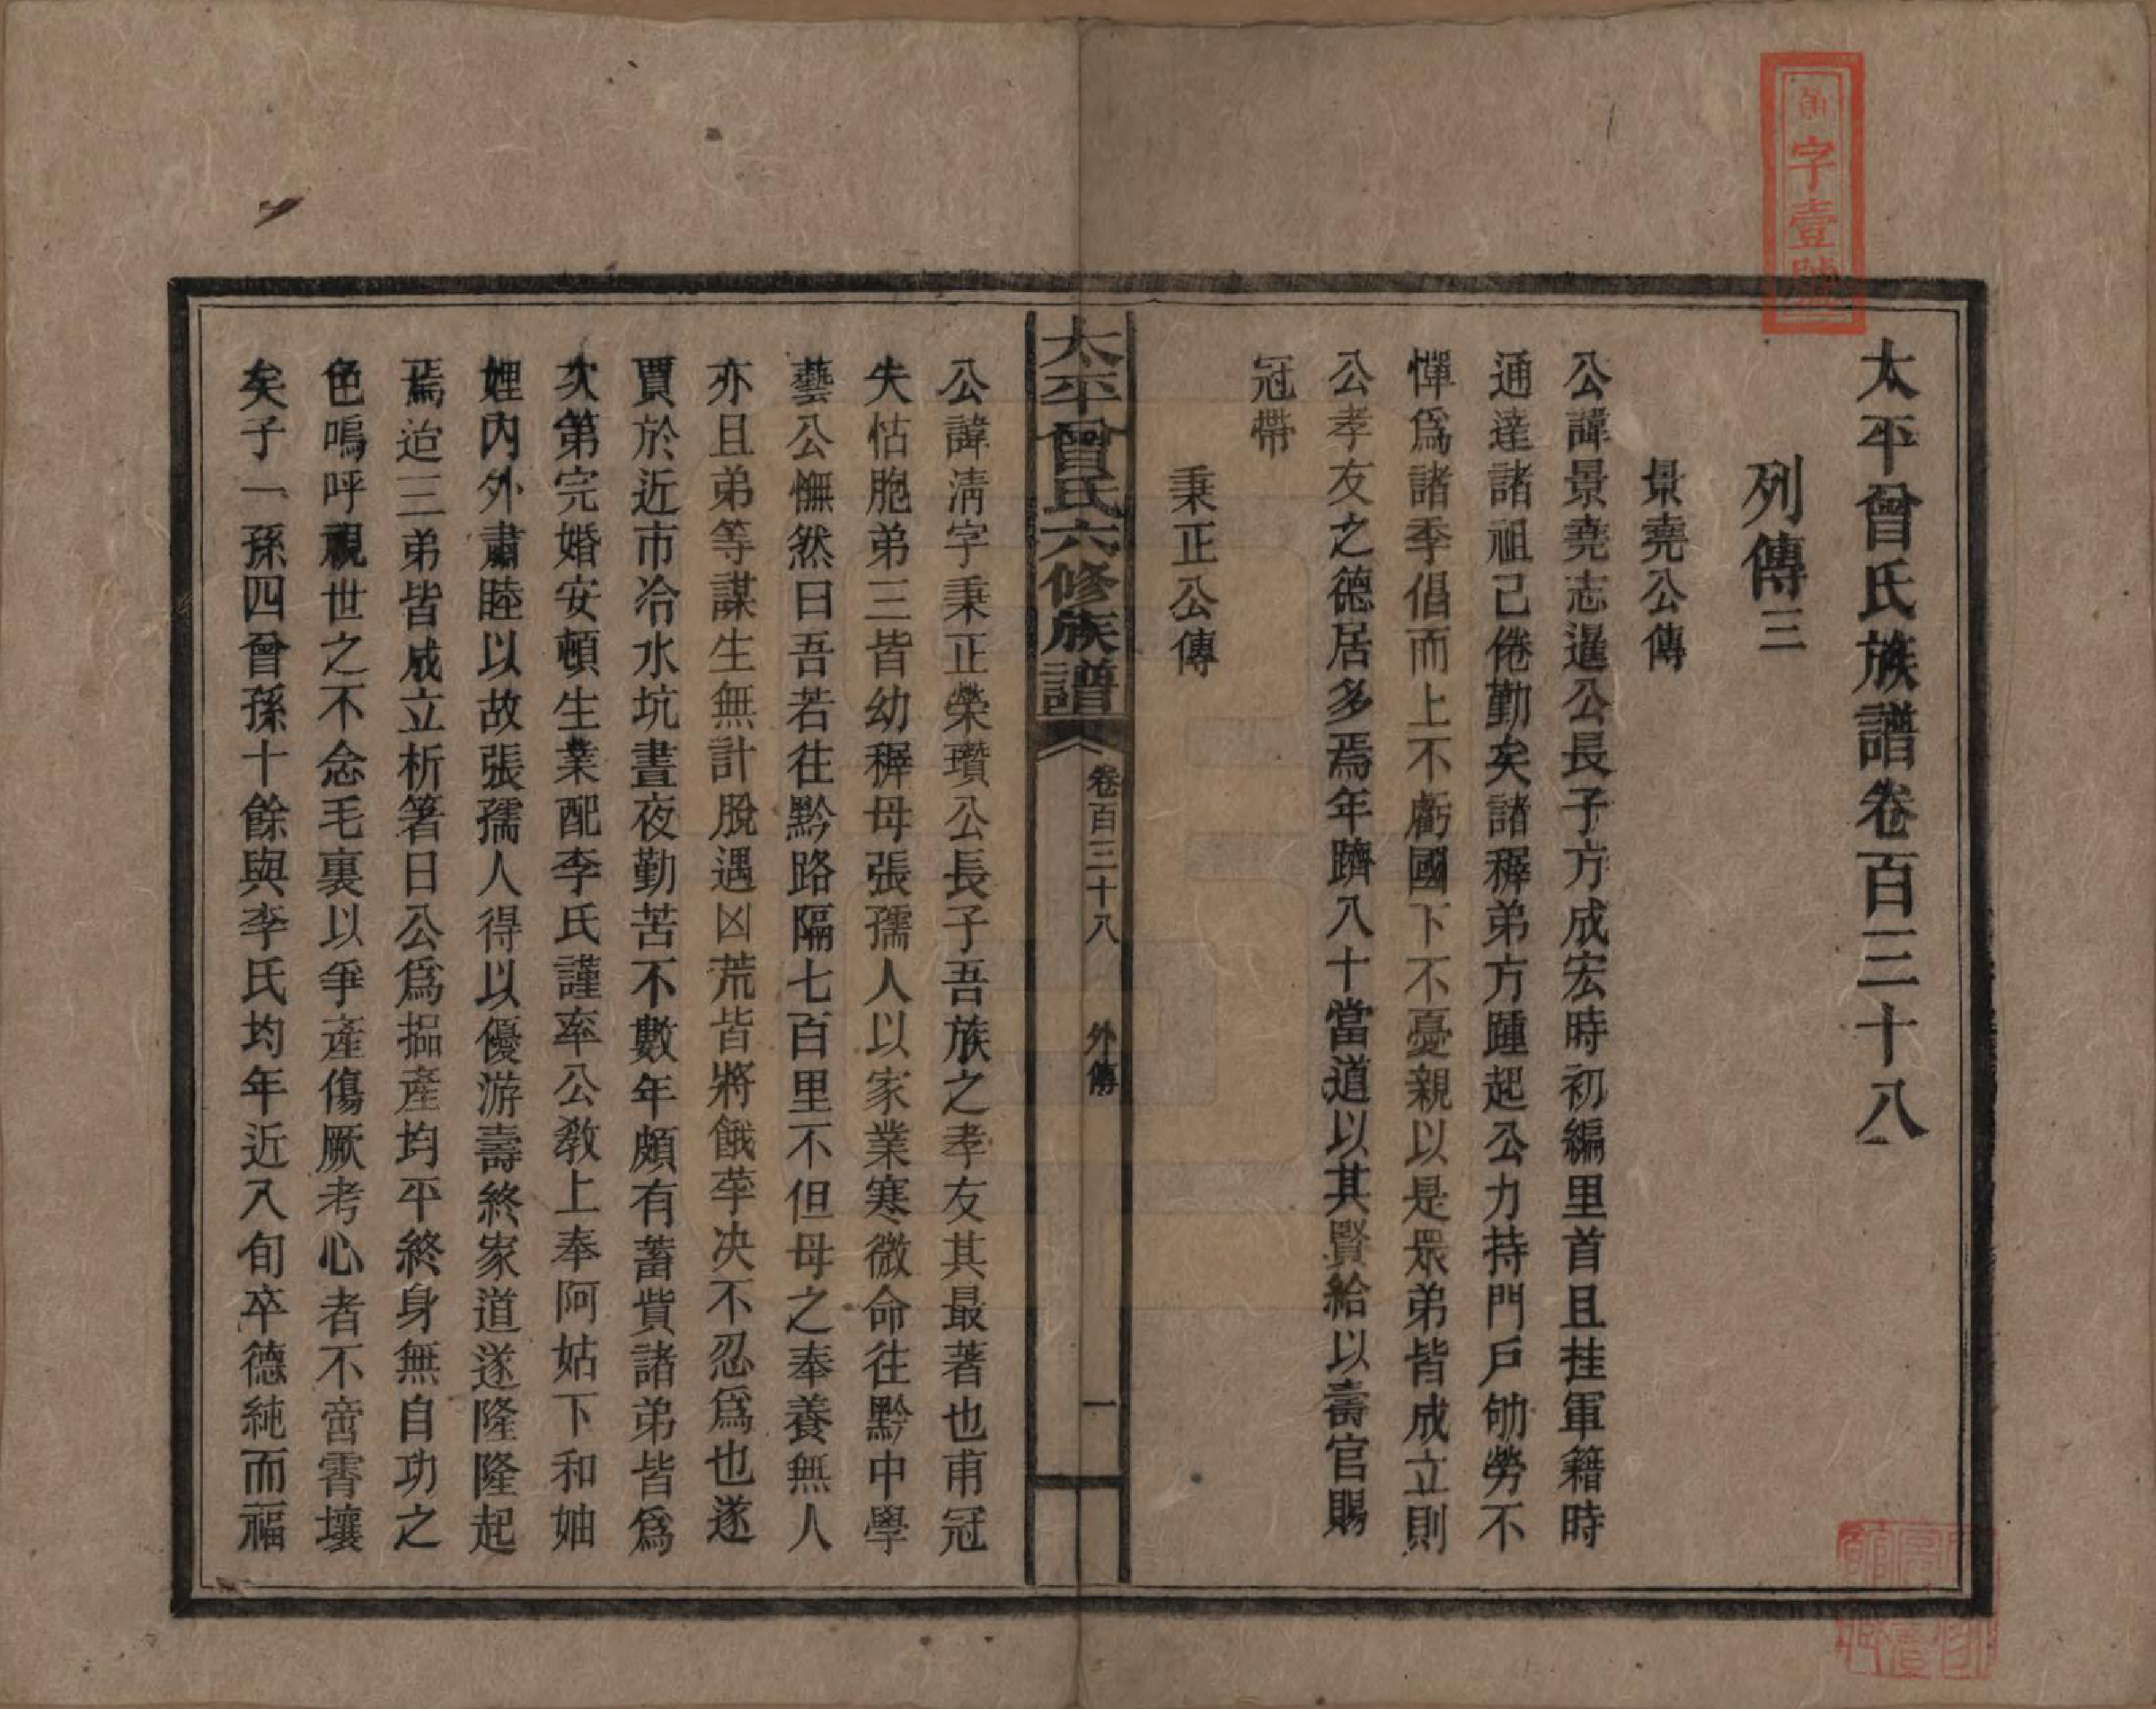 太平曾氏族譜卷百三十八
列傳三
景堯公傳
公諱景堯志暹公長子方成宏時初編里首且挂軍籍時
通達諸祖己倦勤矣諸穉弟方踵起公力持門戶劬勞不
憚爲諸季倡而上不虧國下不憂親以是眾弟皆成立則
公孝友之德居多焉年躋八十當道以其賢給以壽官賜
冠帶
秉正公傳
太平曾氏六修族譜
卷百三十八
外傳
一
公諱清字秉正榮瓚公長子吾族之孝友其最著也甫冠
失怙胞弟三皆幼穉母張孺人以家業寒微命往黔中學
藝公憮然曰吾若往黔路隔七百里不但母之奉養無人
亦且弟等謀生無計脫遇凶荒皆將餓莩决不忍爲也遂
賈於近市冷水坑晝夜勤苦不數年頗有蓄貲諸弟皆爲
次第完婚安頓生業配李氏謹率公敎上奉阿姑下和妯
娌內外肅睦以故張孺人得以優游壽終家道遂隆隆起
焉迨三弟皆成立析箸日公爲搵產均平終身無自功之
色嗚呼視世之不念毛裏以爭產傷厥考心者不啻霄壤
矣子一孫四曾孫十餘與李氏均年近八旬卒德純而福
字壹號